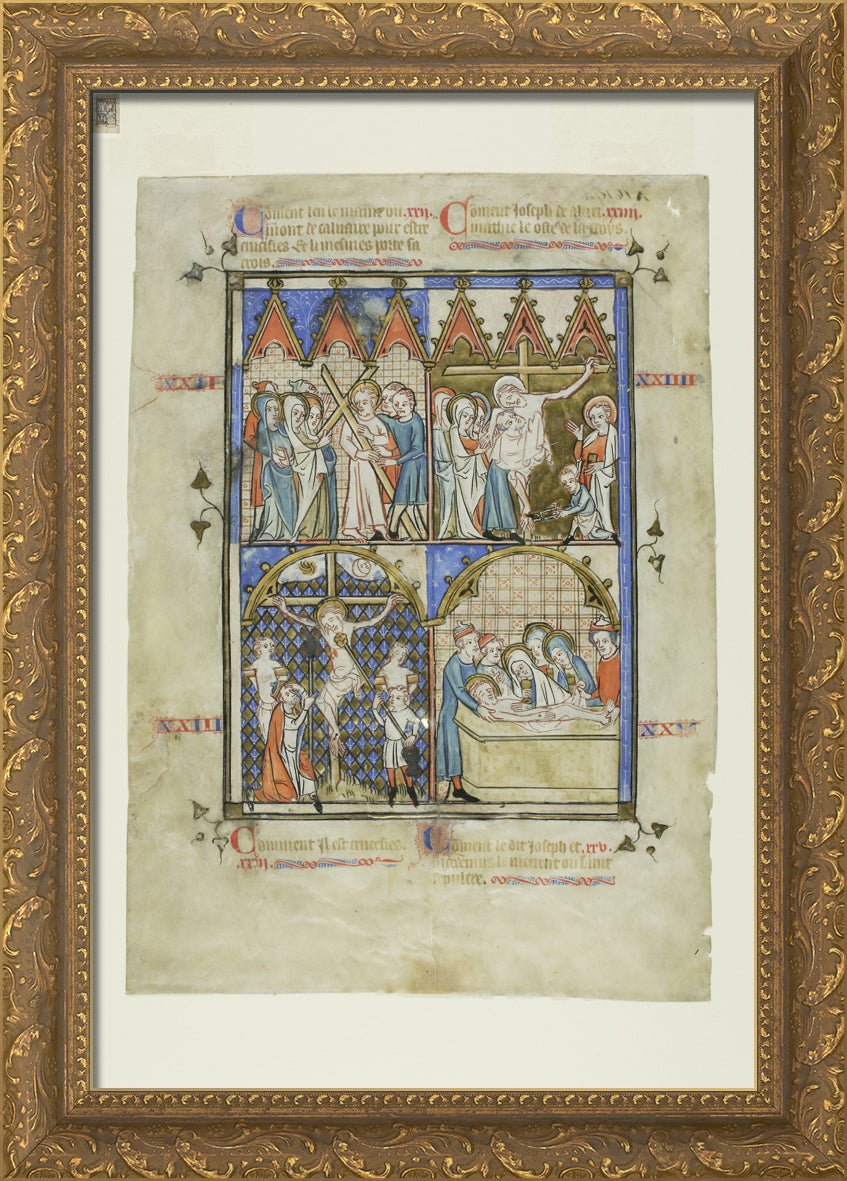 Coment len le maine ou .xxij.
mont de caluaire pour estre
crucefies Et li mesmes porte sa
crois.
Coment Joseph de .xxiiij.
mathie le oste de la croys.
XXII
XXIIII
XXIII
XXV
Comment Il est crucefies.
.xxiij.
Coment le dit Joseph et .xxv.
Nicodemus le mettent ou saint
sepulcre.